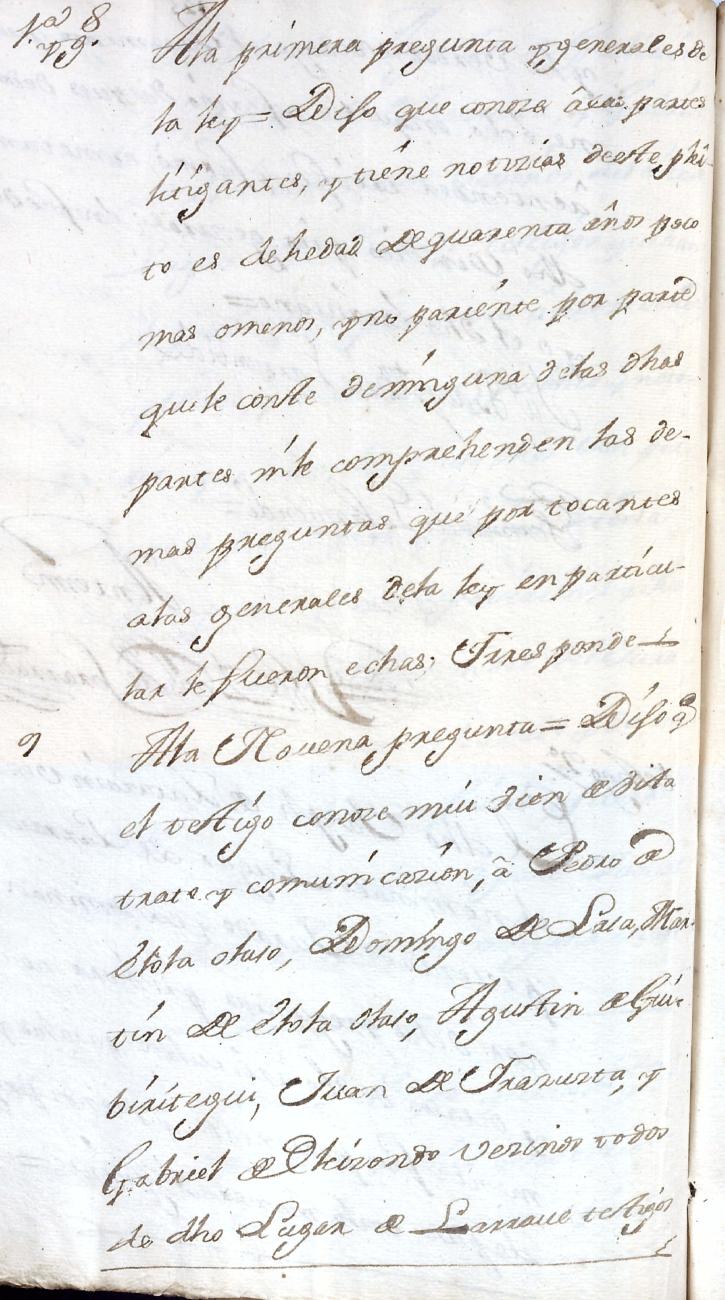 1ª 8
y g.
Ala primera pregunta y generales de
la ley = Dijo que conoze â las partes
litigantes, y tiene notizias deeste plei-
to es dehedad de quarenta años poco
mas omenos, yno pariente por parte
quele conste deninguna delas dhas
partes nile comprehenden las de-
mas preguntas que por tocantes
alas generales dela ley enparticu-
lar le fueron echas; Yrresponde
9 Ala Novena pregunta = Dijo q
el testigo conoze mui bien de vista
trato y comunicazion, â Pedro de
Olaso, Domingo de Mar-
tin de Olaso, Agustin de Gui-
biritegui, Juan de Yrazusta, y
Gabriel de Eleizondo vezinos todos
de dho Lugar de Larraue testigos